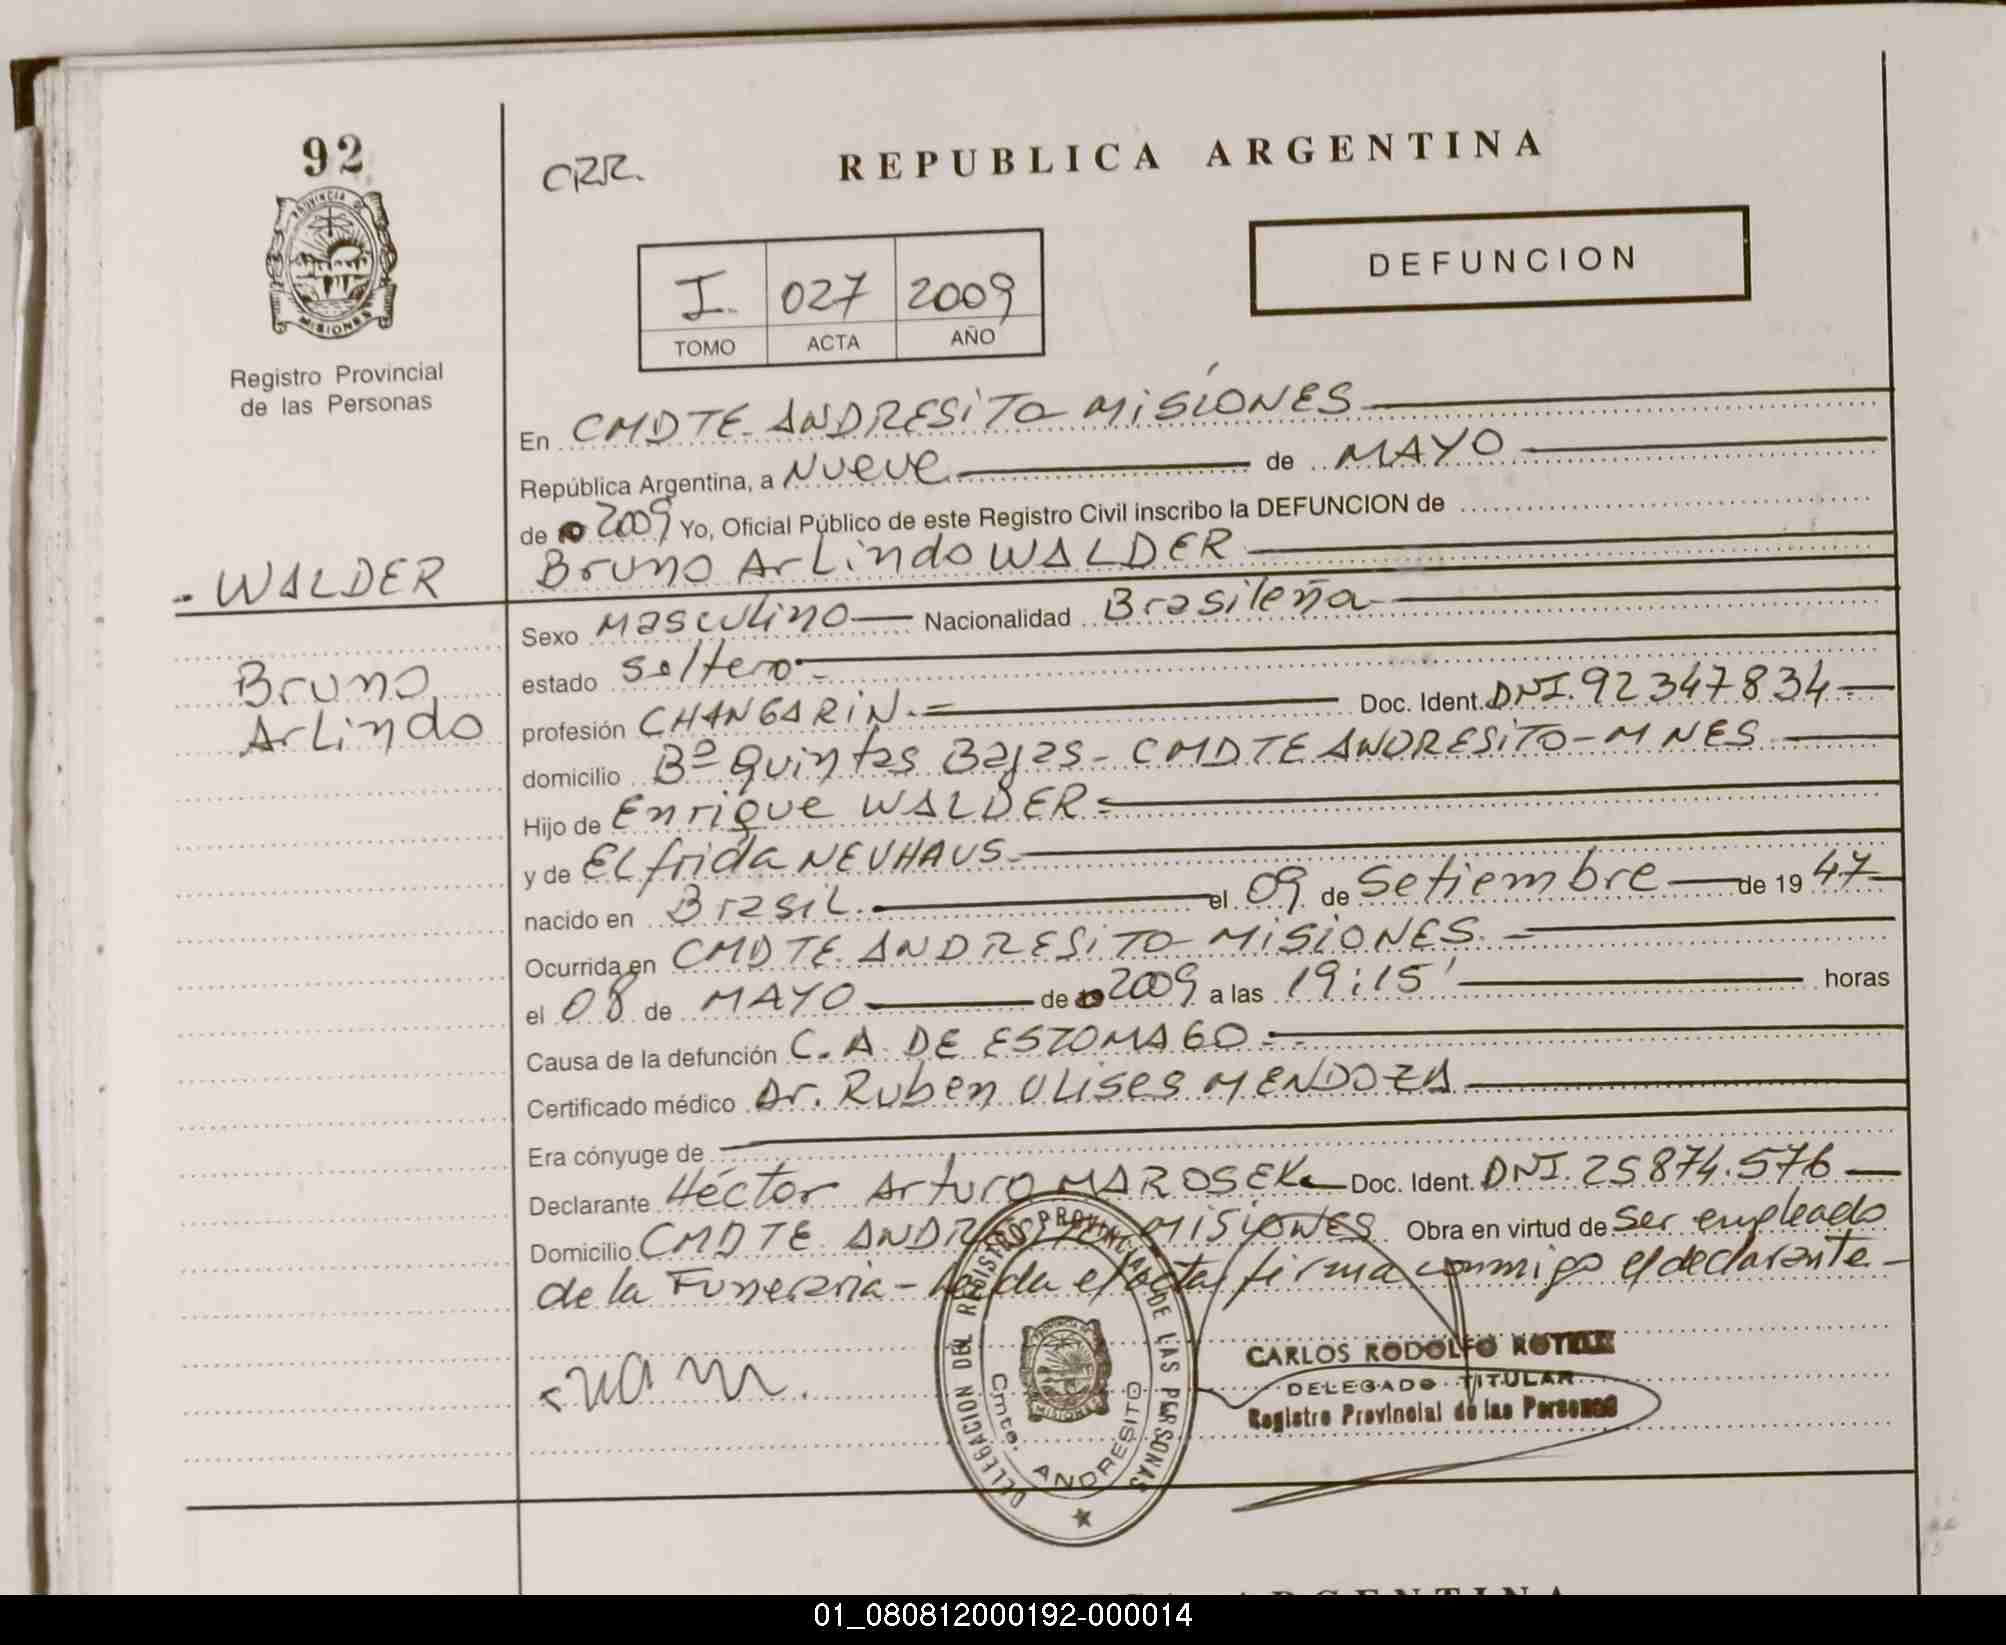 92
CRR.
REPUBLICA ARGENTINA
PROVINCIA DE
MISIONES
I. 027 2009
TOMO ACTA AÑO
DEFUNCION
Registro Provincial
de las Personas
En CMDTE. ANDRESITO MISIONES
República Argentina, a NUEVE de MAYO
de 2009 Yo, Oficial Público de este Registro Civil inscribo la DEFUNCION de
- WALDER
Bruno Arlindo WALDER
Sexo Masculino Nacionalidad Brasileña
estado soltero.-
Bruno
Arlindo
profesión CHANGARIN.= Doc. Ident. DNI. 92347834.-
domicilio Bº Quintas Bajas - CMDTE ANDRESITO - MNES
Hijo de Enrique WALDER =
y de Elfrida NEUHAUS.
nacido en Brasil. el 09 de Setiembre de 19 47
Ocurrida en CMDTE. ANDRESITO MISIONES. -
el 08 de MAYO de 2009 a las 19:15' horas
Causa de la defunción C.A. DE ESTOMAGO =
Certificado médico Dr. Ruben Ulises MENDOZA
Era cónyuge de
Declarante Héctor Arturo MAROSEK Doc. Ident. DNI. 25874.576
Domicilio CMDTE ANDRESITO MISIONES Obra en virtud de ser empleado
de la Funeraria - leida el acta firma conmigo el declarante -
DELEGACION DEL REGISTRO PROVINCIAL DE LAS PERSONAS
PROVINCIA DE
MISIONES
Cmte. ANDRESITO
CARLOS RODOLFO
DELEGADO TITULAR
Registro Provincial de las Personas
ARGENTINA
01_080812000192-000014